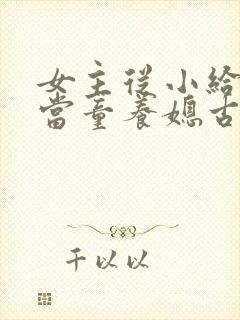 女主從小給
當童養媳古
千以以